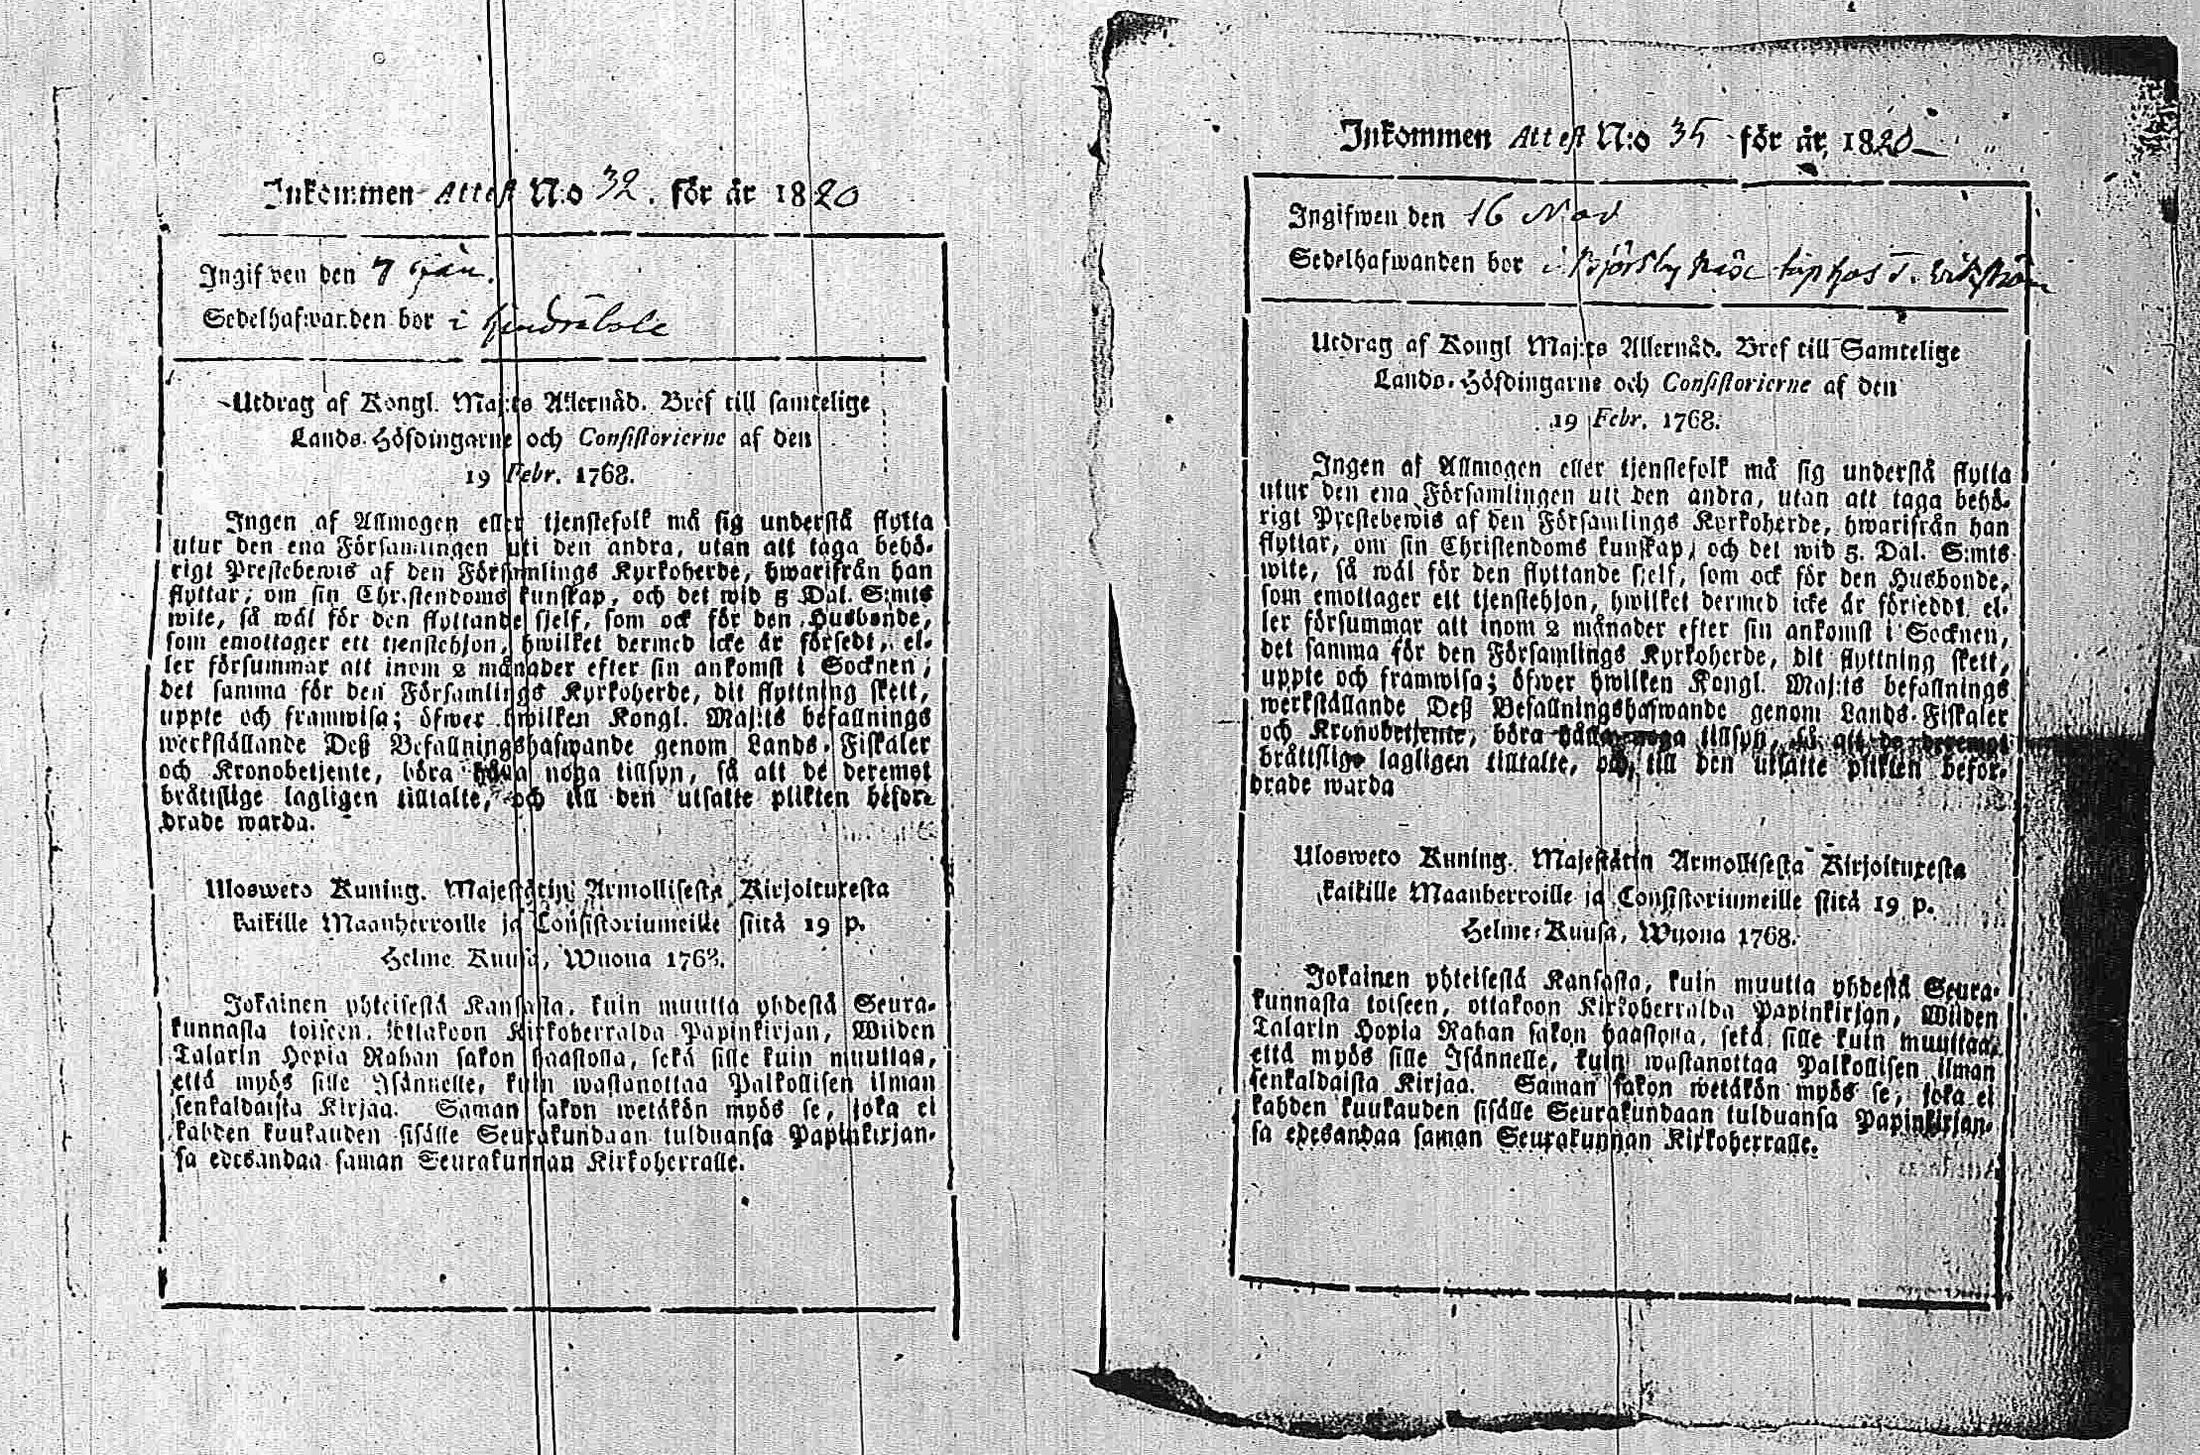 Inkommen Attest N:o 32. för år 1820
Ingifven den 7 Jan.
Sedelhafwanden bor i
Utdrag af Kongl. Maj:ts Allernåd. Bref till samtelige
Lands-Höfdingarne och Consistorierne af den
19 Febr. 1768.
Ingen af Allmogen eller tjenstefolk må sig understå flytta
utur den ena Församlingen uti den andra, utan att taga behö-
rigt Prestebewis af den Församlings Kyrkoherde, hwarifrån han
flyttar, om sin Christendoms kunskap, och det wid 5 Dal. S:mts
wite, så wäl för den flyttande sjelf, som ock för den Husbonde,
som emottager ett tjenstehjon, hwilket dermed icke är försedt, el-
ler försummar att inom 2 månader efter sin ankomst i Socknen,
det samma för den Församlings Kyrkoherde, dit flyttning skett,
uppte och framwisa; öfwer hwilken Kongl. Maj:ts befallnings
werkställande Deß Befallningshafwande genom Lands-Fiskaler
och Kronobetjente, böra hafwa noga tillsyn, så att de deremot
bråttslige lagligen tilltalte, och till den utsatte plikten befor-
drade warda.
Ulosweto Kuning. Majestätin Armollisesta Kirjoituxesta
kaikille Maanherroille ja Consistoriumeille siitä 19 p.
Helme Kuusa, Wuona 1768.
Jokainen yhteisestä Kansasta, kuin muutta yhdestä Seura-
kunnasta toiseen, ottakoon Kirkoherralda Papinkirjan, Wiiden
Talarin Hopia Rahan sakon haastolla, sekä sille kuin muuttaa,
että myös sille Isännelle, kuin wastanottaa Palkollisen ilman
senkaldaista Kirjaa. Saman sakon wetäkön myös se, joka ei
kahden kuukauden sisälle Seurakundaan tulduansa Papinkirjan-
sa edesandaa saman Seurakunnan Kirkoherralle.
Inkommen Attest N:o 35 för år 1820
Ingifwen den 16 Nov
Sedelhafwanden bor i
Utdrag af Kongl Maj:ts Allernåd. Bref till Samtelige
Lands-Höfdingarne och Consistorierne af den
19 Febr. 1768.
Ingen af Allmogen eller tjenstefolk må sig understå flytta
utur den ena Församlingen uti den andra, utan att taga behö-
rigt Prestebewis af den Församlings Kyrkoherde, hwarifrån han
flyttar, om sin Christendoms kunskap, och det wid 5. Dal. S:mts
wite, så wäl för den flyttande sjelf, som ock för den Husbonde,
som emottager ett tjenstehjon, hwilket dermed icke är förseddt, el-
ler försummar att inom 2 månader efter sin ankomst i Socknen,
det samma för den Församlings Kyrkoherde, dit flyttning skett,
uppte och framwisa; öfwer hwilken Kongl. Maj:ts befallnings
werkställande Deß Befallningshafwande genom Lands-Fiskaler
och Kronobetjente, böra noga tillsyn, så att de deremot
bråttslige lagligen tilltalte, och till den utsatte plikten befor-
drade warda
Ulosweto Kuning. Majestätin Armollisesta Kirjoituxesta
kaikille Maanherroille ja Consistoriumeille siitä 19 p.
Helme-Kuusa, Wuona 1768.
Jokainen yhteisestä Kansasta, kuin muutta yhdestä Seura-
kunnasta toiseen, ottakoon Kirkoherralda Papinkirjan, Wiiden
Talarin Hopia Rahan sakon haastolla, sekä sille kuin muuttaa,
että myös sille Isännelle, kuin wastanottaa Palkollisen ilman
senkaldaista Kirjaa. Saman sakon wetäkön myös se, joka ei
kahden kuukauden sisälle Seurakundaan tulduansa Papinkirjan-
sa edesandaa saman Seurakunnan Kirkoherralle.